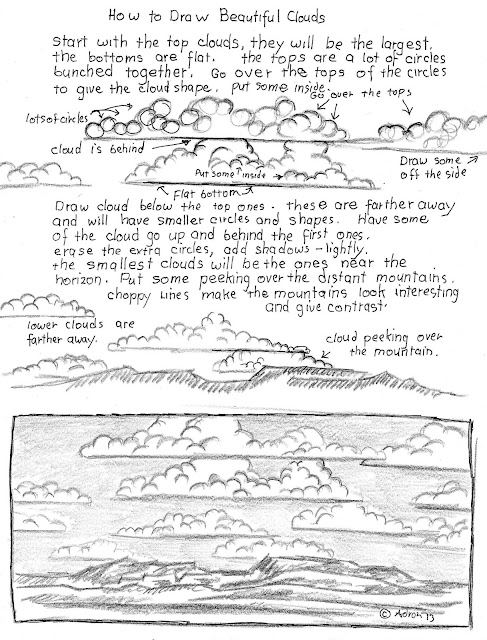 How to Draw Beautiful Clouds
Start with the top clouds, they will be the largest.
the bottoms are flat. the tops are a lot of circles
bunched together. Go over the tops of the circles
to give the cloud shape. Put some inside.
Go over the tops
lots of circles
cloud is behind
Put some inside
Draw some
off the side
Flat bottom
Draw cloud below the top ones. these are farther away
and will have smaller circles and shapes. Have some
of the cloud go up and behind the first ones.
erase the extra circles, add shadows - lightly.
the smallest clouds will be the ones near the
horizon. Put some peeking over the distant mountains.
choppy lines make the mountains look interesting
and give contrast.
lower clouds are
farther away.
cloud peeking over
the mountain.
©